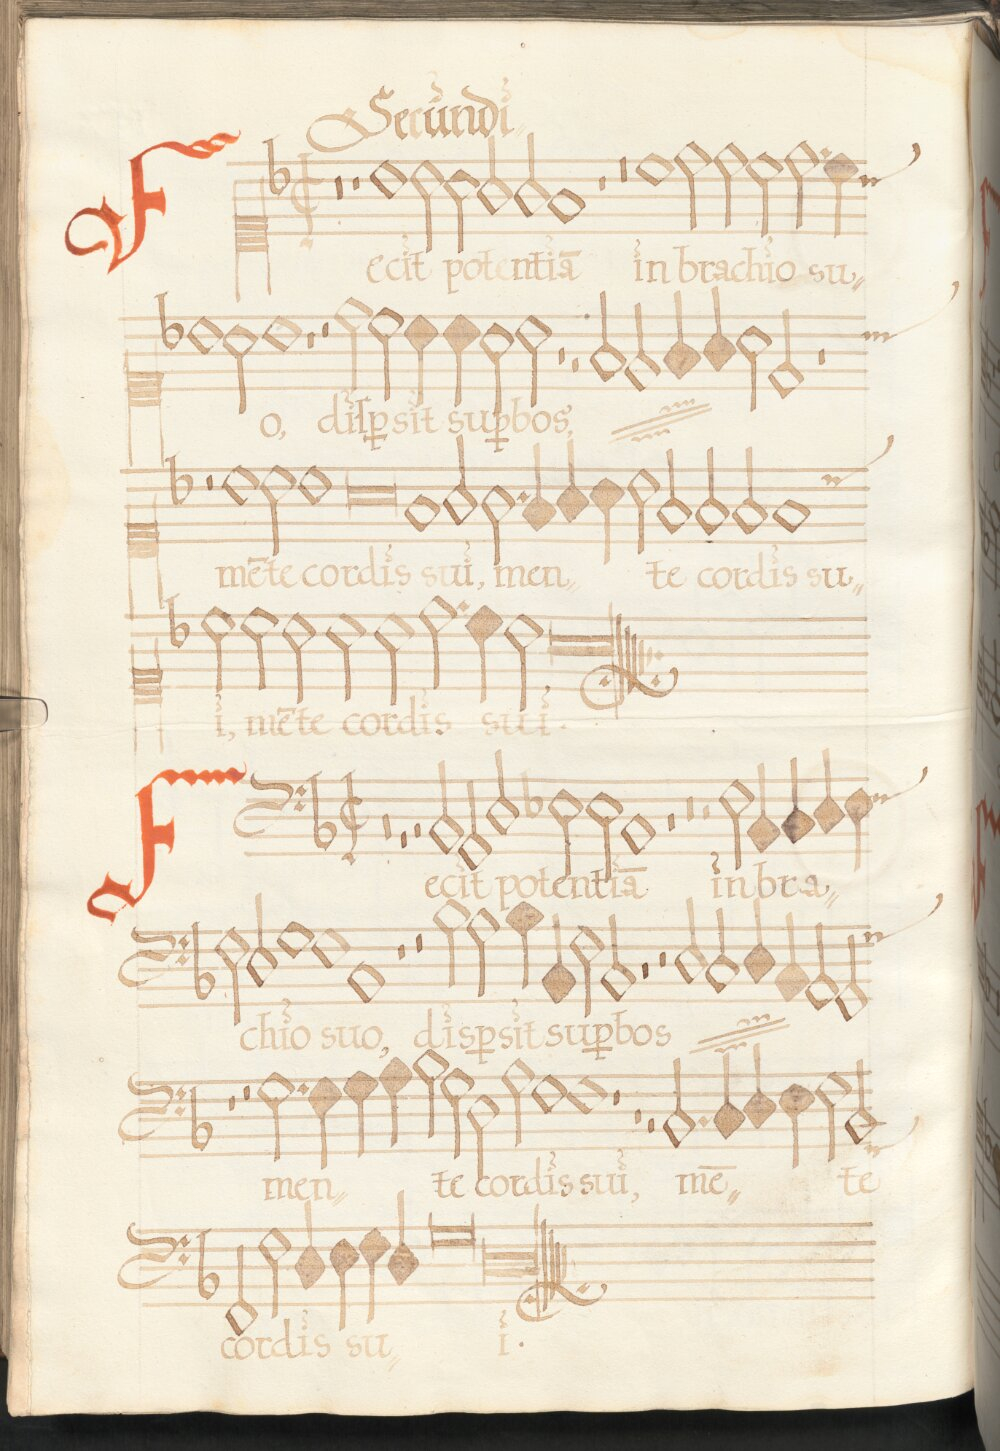 Secundi
Fecit potentiā in brachio su〃
o, disꝑsit suꝑbos,
mēte cordis sui, men〃 te cordis su〃
i, mēte cordis sui.
Fecit potentiā in bra〃
chio suo, disꝑsit suꝑbos
men〃 te cordis sui, mē〃 te
cordis su〃 i.